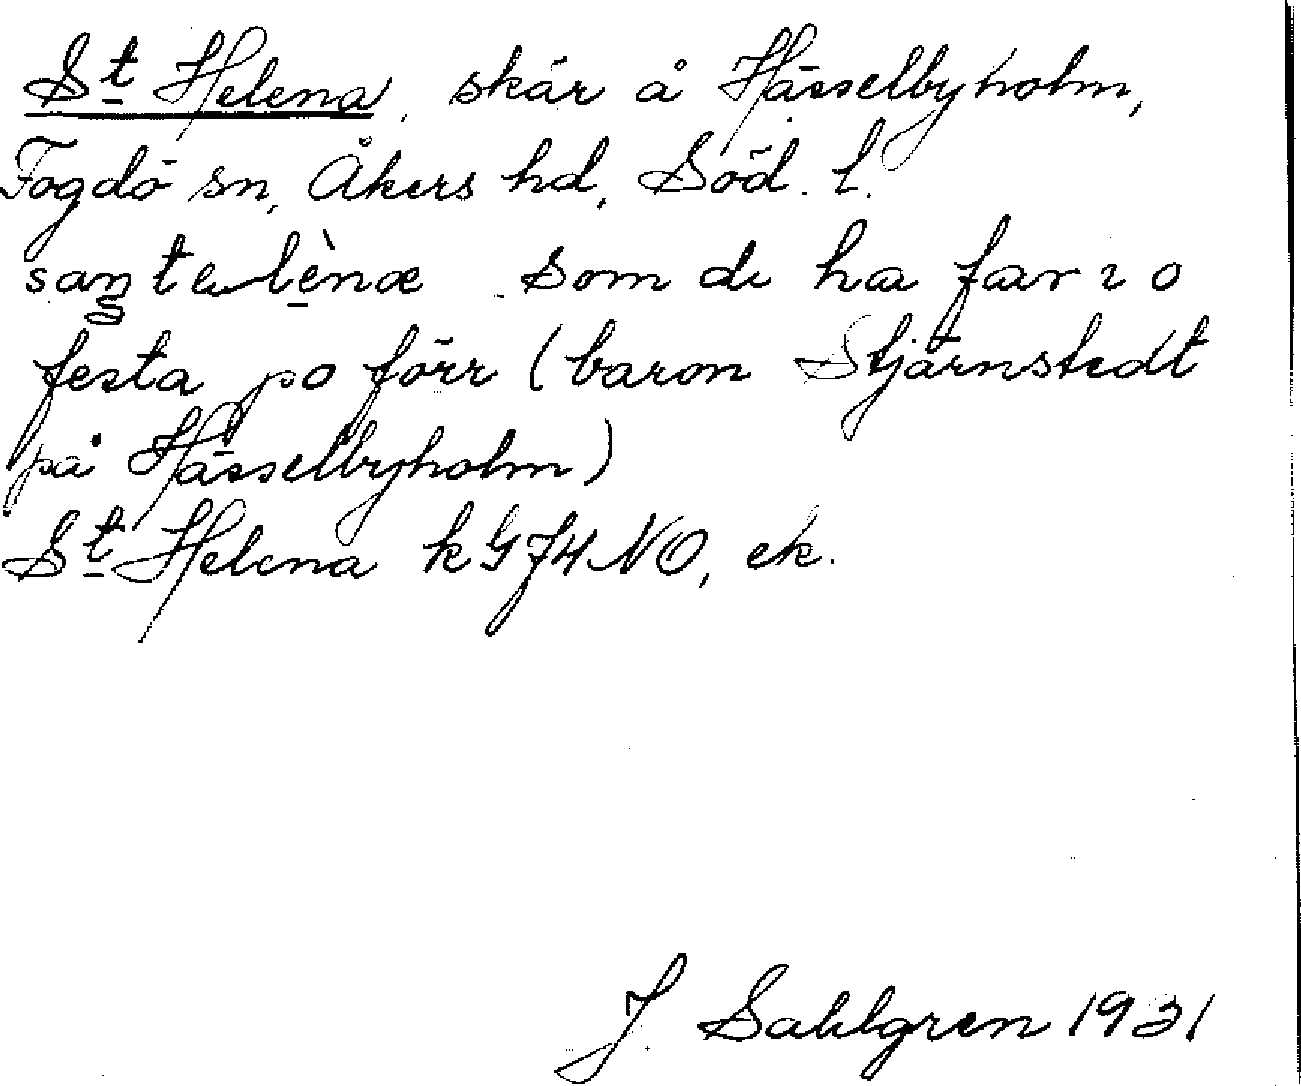 St Helena, skär å Hässelbyholm,
Fogdö sn, Åkers hd, Söd. l.
santelènæ som de ha far ı o
festa po förr (baron Stjärnstedt
på Hässelbyholm)
St Helena k G74NO, ek.
J. Sahlgren 1931